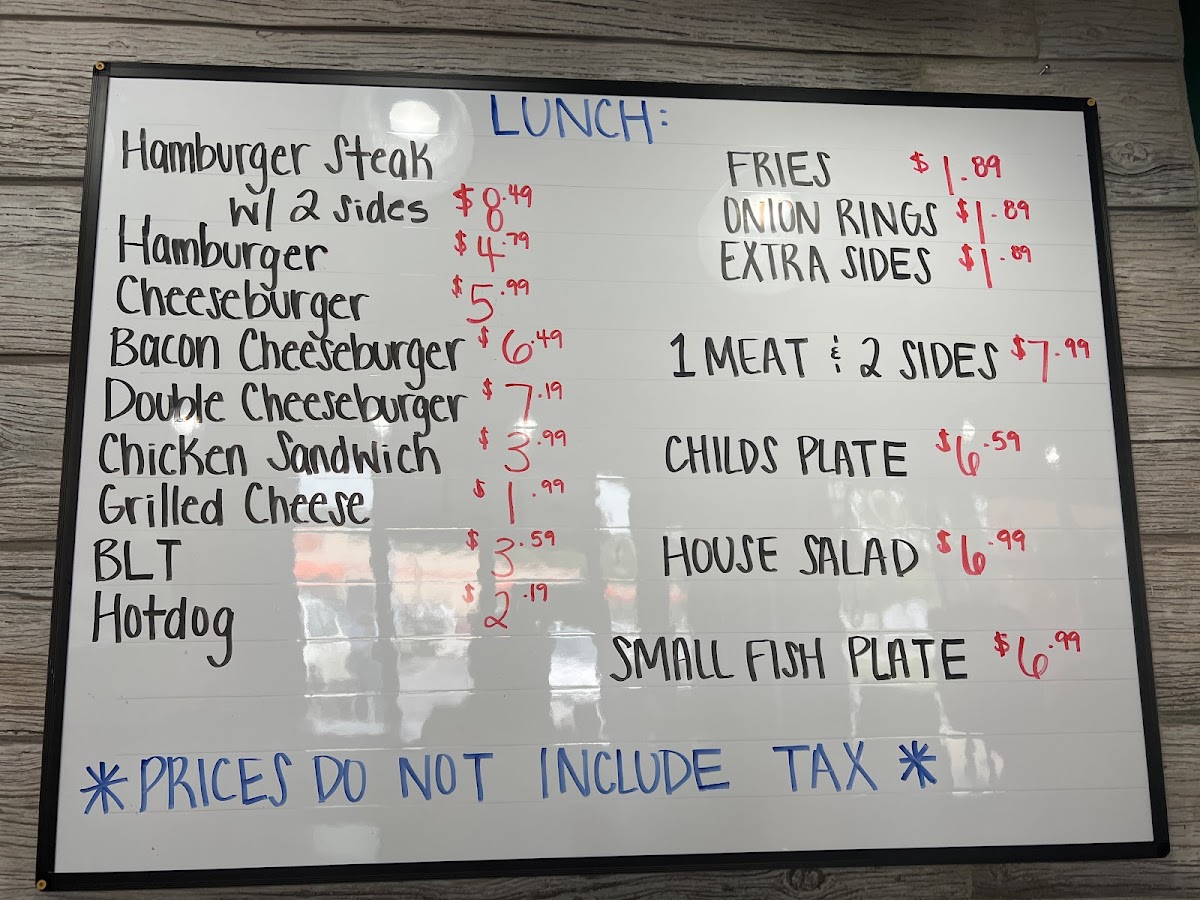 LUNCH:
Hamburger Steak
w/ 2 sides $8.49
Hamburger $4.79
Cheeseburger $5.99
Bacon Cheeseburger $6.49
Double Cheeseburger $7.19
Chicken Sandwich $3.99
Grilled Cheese $1.99
BLT $3.59
Hotdog $2.19
FRIES $1.89
ONION RINGS $1.89
EXTRA SIDES $1.89
1 MEAT & 2 SIDES $7.99
CHILDS PLATE $6.59
HOUSE SALAD $6.99
SMALL FISH PLATE $6.99
*PRICES DO NOT INCLUDE TAX*